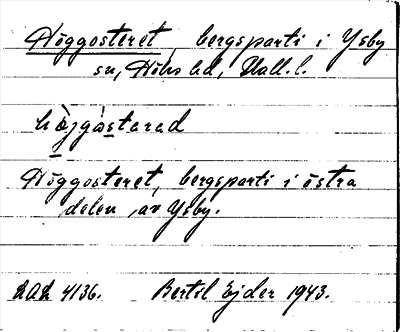 Höggosteret, bergsparti i Ysby
sn, Höks hd, Hall. l.
hö̀jgåstarəd
Höggosteret, bergsparti i östra
delen av Ysby.
LAL 4136. Bertil Ejder 1943.